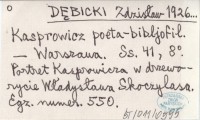 0
DĘBICKI Zdzisław 1926...
Kasprowicz poeta-bibljofil.
— Warszawa. Ss. 41, 8°.
Portret Kasprowicza w drzewo-
rycie Władysława Skoczylasa.
Egz. numer. 550.